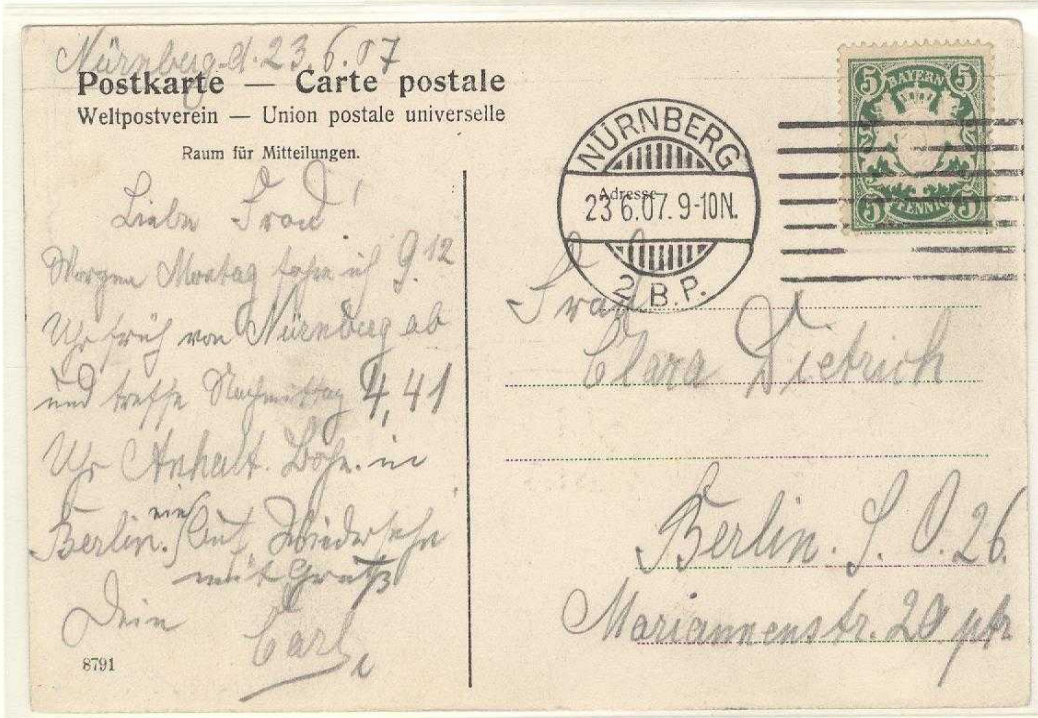 Nürnberg d. 23.6.07
Postkarte — Carte postale
Weltpostverein — Union postale universelle
Raum für Mitteilungen.
Liebe Frau!
Morgen Montag fahre ich 9.12
Uhr früh von Nürnberg ab
und treffe Nachmittag 4,41
Uhr Anhalt. Bahn. in
Berlin. ein
Auf Wiedersehn
mit Gruß
Dein
Carl
8791
5 BAYERN 5
5 PFENNIG 5
NÜRNBERG
Adresse
23 6.07. 9-10N.
2 B.P.
Frau
Clara Dietrich
Berlin. S. O. 26.
Mariannenstr. 29 ptr